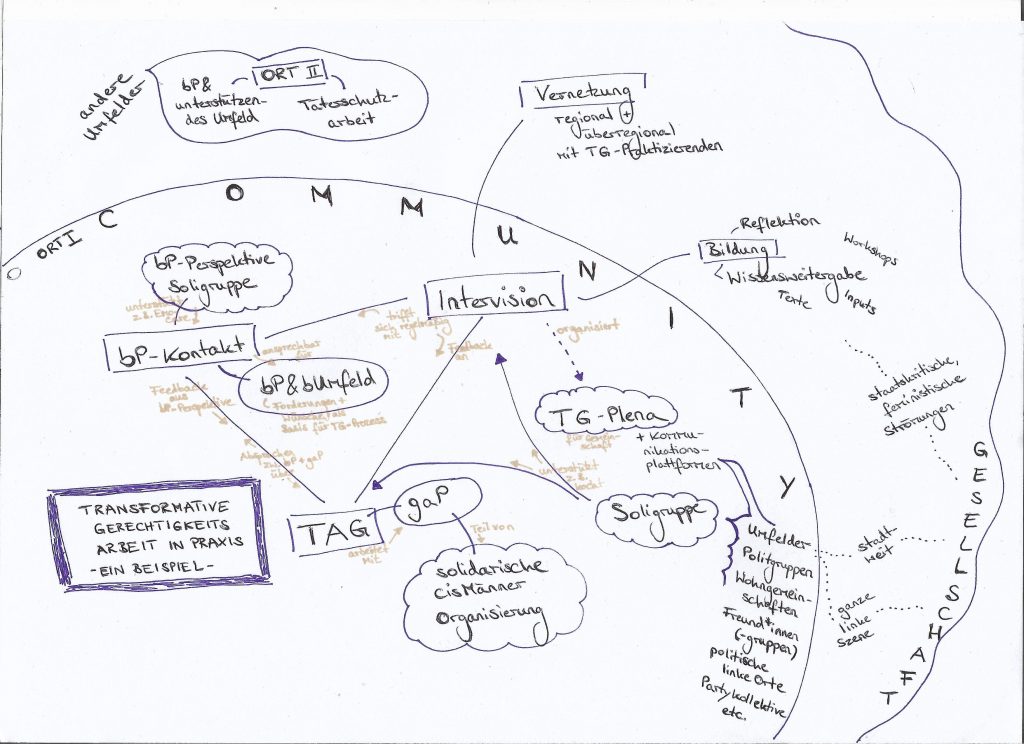 andere
Umfelder
ORT II
bP &
unterstützen-
des Umfeld
Täterschutz-
arbeit
Vernetzung
regional +
überregional
mit TG-Praktizierenden
COMMUNITY
ORT I
bP-Perspektive
Soligruppe
unterstützt
z.B.
care
bP-Kontakt
ansprechbar
für
bP & bUmfeld
Forderungen +
Wünsche als
Basis für TG-Prozess
Feedback
aus
bP-Perspektive
Absprachen
zw. bP + gaP
über
trifft
sich regelmäßig
mit
Intervision
Feedback
an
organisiert
TG-Plena
für Gemein-
schaft
+ Kommu-
nikations-
plattformen
Bildung
Reflektion
Wissensweitergabe
Workshops
Inputs
Texte
staatskritische,
feministische
Strömungen
TRANSFORMATIVE
GERECHTIGKEITS
ARBEIT IN PRAXIS
- EIN BEISPIEL -
TAG
arbeitet
mit
gaP
Teil von
solidarische
cisMänner
Organisierung
unterstützt
z.B.
kocht
Soligruppe
Umfelder
Politgruppen
Wohngemein-
schaften
Freund*innen
(-gruppen)
politische
linke Orte
Partykollektive
etc.
stadt-
weit
ganze
linke
Szene
GESELLSCHAFT